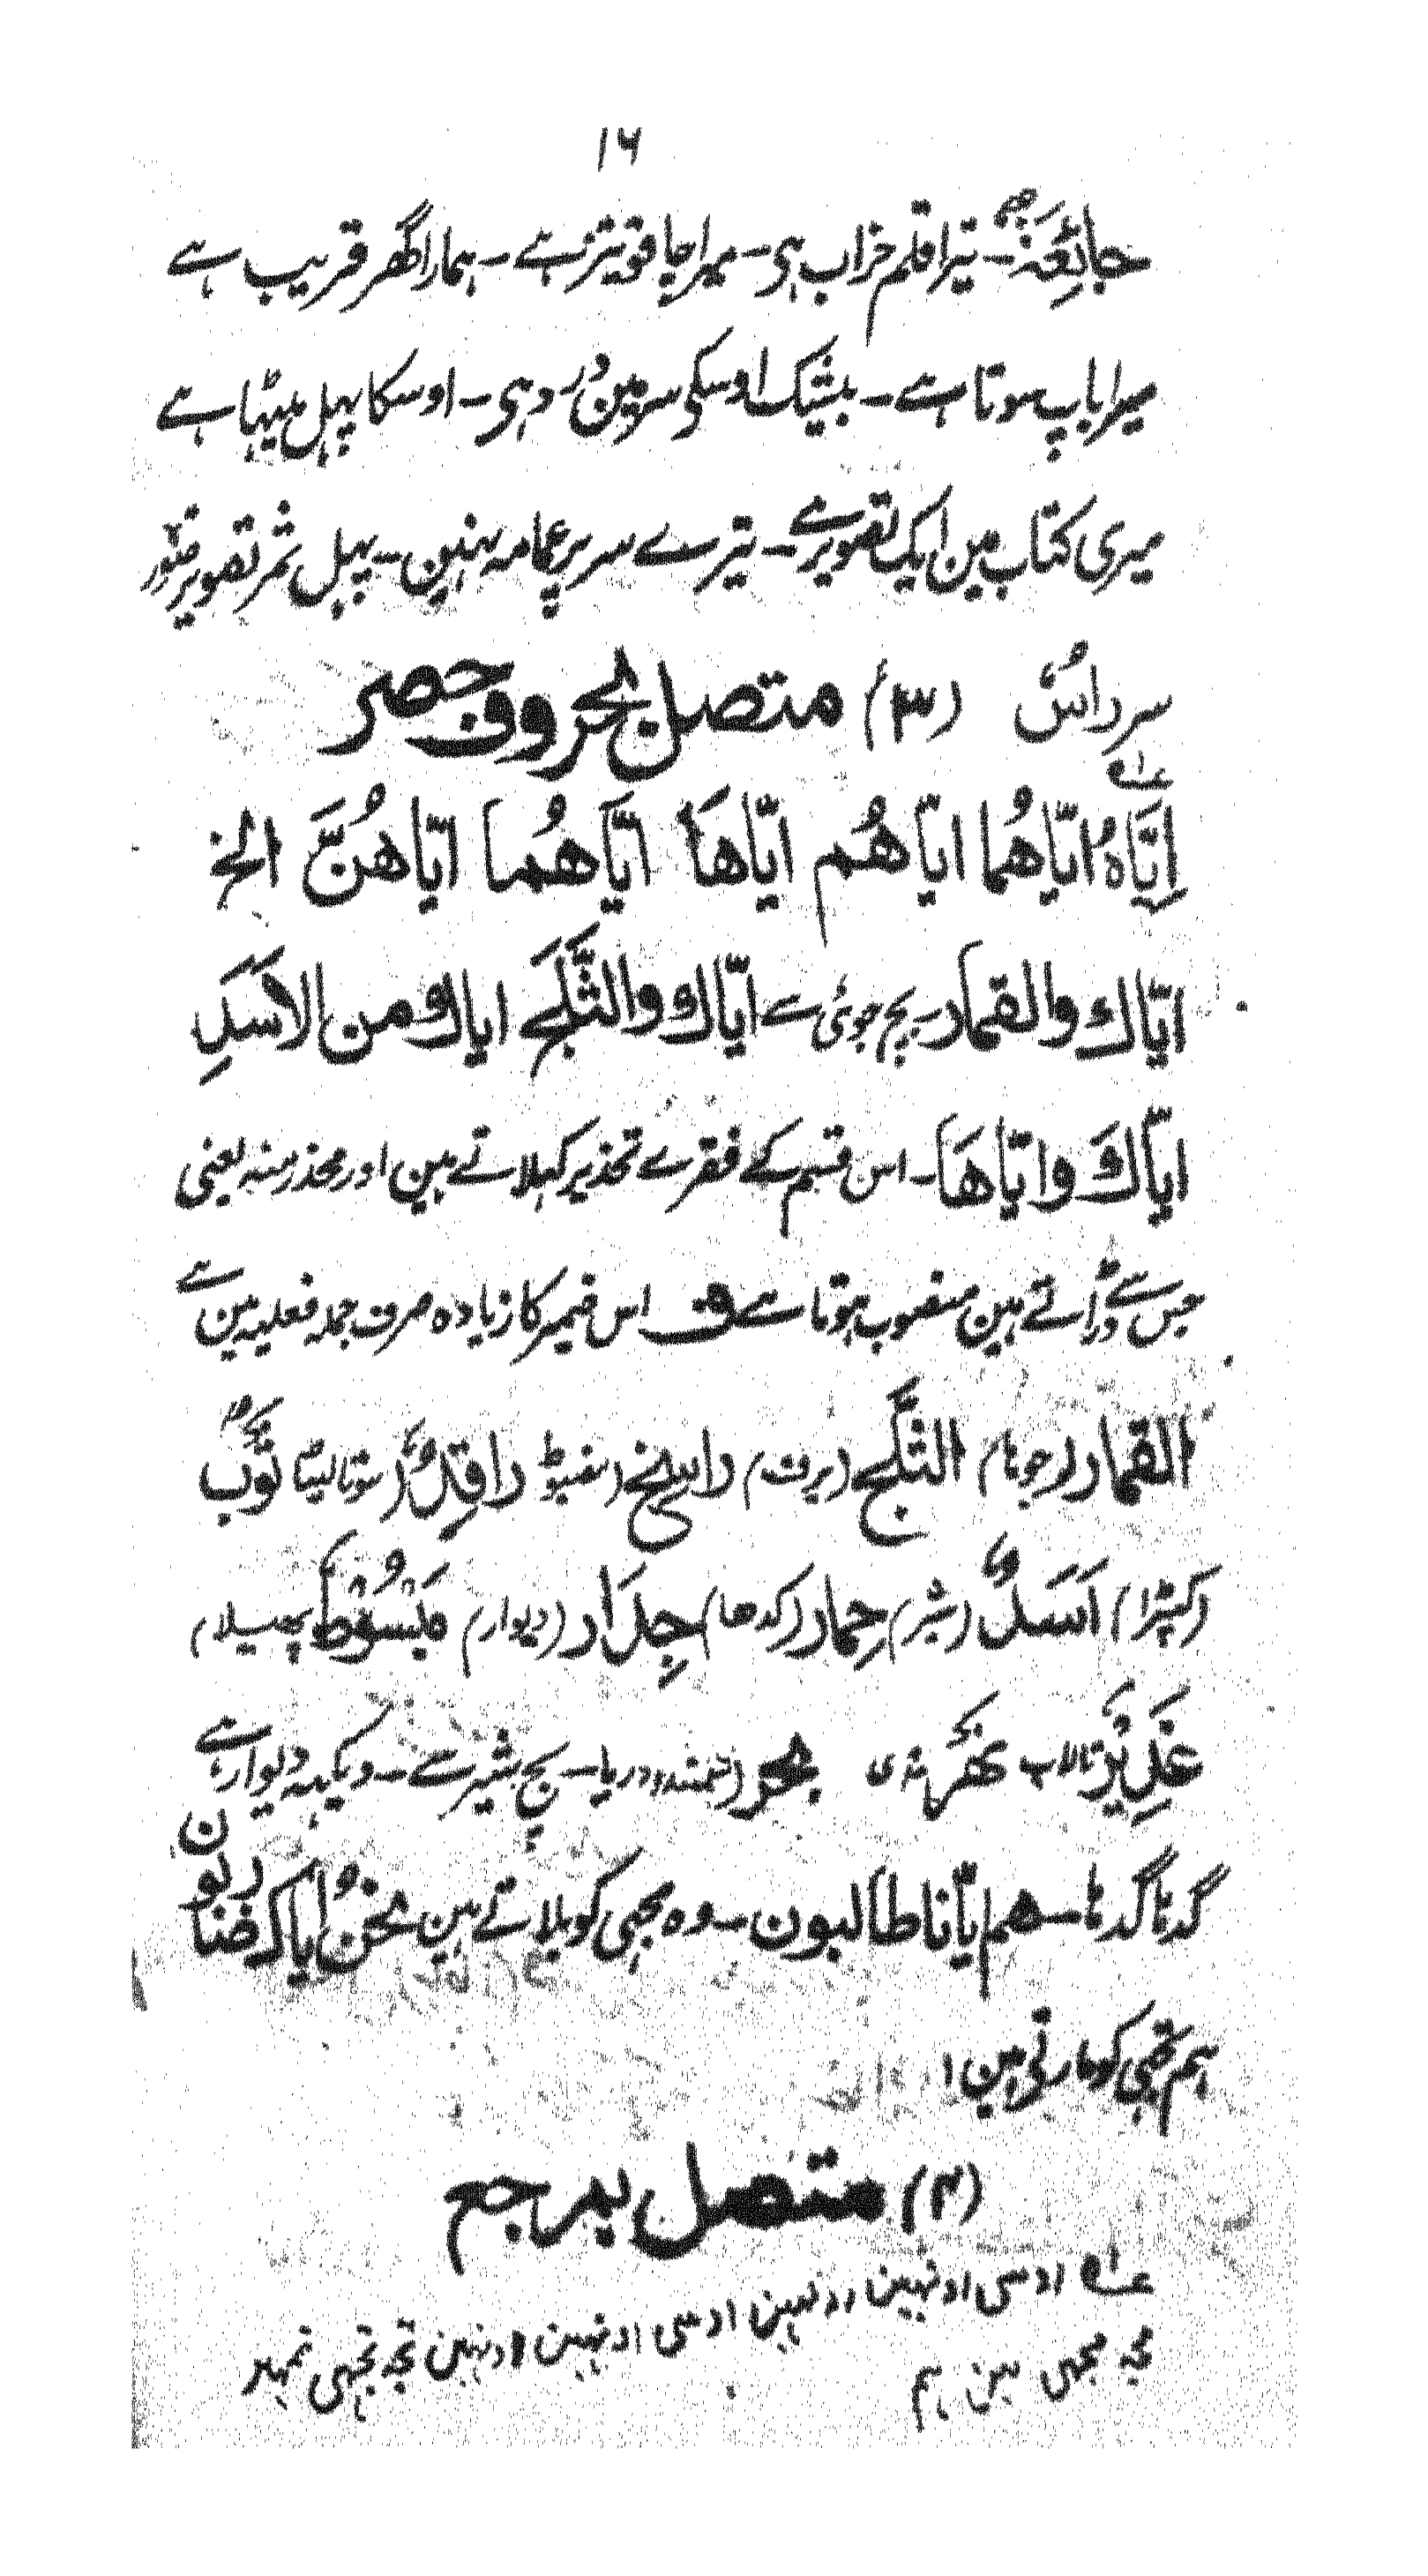 ۱۶
جائعۃ ۔ تیرا قلم خراب ہی ۔ میرا چاقو تیز ہے ۔ ہمارا گھر قریب ہے
میرا باپ سوتا ہے ۔ بیشک اوسکی سر مین درد ہی ۔ اوسکا پہل میٹہا ہے
میری کتاب مین ایک تصویر ہے ۔ تیرے سر پر عمامہ نہین ۔ پہل ثمر تصویر
سر راسٌ (۳) متصل بحروف حصر
اِیَّاہُ ایّاهُما ایاّهُم ایّاهَا ایّاهُما ایّاهُنَّ الخ
ایّاك والقمار ۔ بچ جوئی سے ایّاك والثَّلَج ایاك ومن الاَسَدِ
ایّاكَ وایّاهَا ۔ اس قسم کے فقرے تحذیر کہلاتے ہین اور محذر منہ یعنی
جس سے ڈراتے ہین منصوب ہوتا ہے ف اس ضمیر کا زیادہ صرف جملہ فعلیہ مین ہے
القمار (جوا) الثلَج (برف) راسِخ راقِدٌ (سوتا لیٹا) ثَوب
(کپڑا) اَسَدٌ (شیر) حِمار (گدھا) جِدَار (دیوار) مَبْسُوط
غَدِیْرٌ تالاب نھَر ندی بحر (سمندر دریا ۔ بچ شیر سے ۔ دیکہہ دیوار ہے
گدھا گدھا ۔ هم ایّانا طالبون ۔ وہ مجہی کو بلاتے ہین نحنُ ایاك ضاربون
ہم تجہی کو مارتی ہین ۱
(۴) متصل بمرجع
عــه اوسی اونہین اونہین اوسی اونہین اونہین تجہ تجہی تمہین
مجہ مجہی ہمین ہم